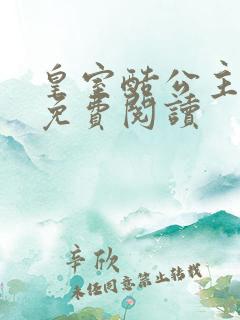 皇室酷公主
免費閱讀
辛欣
未经同意禁止转载